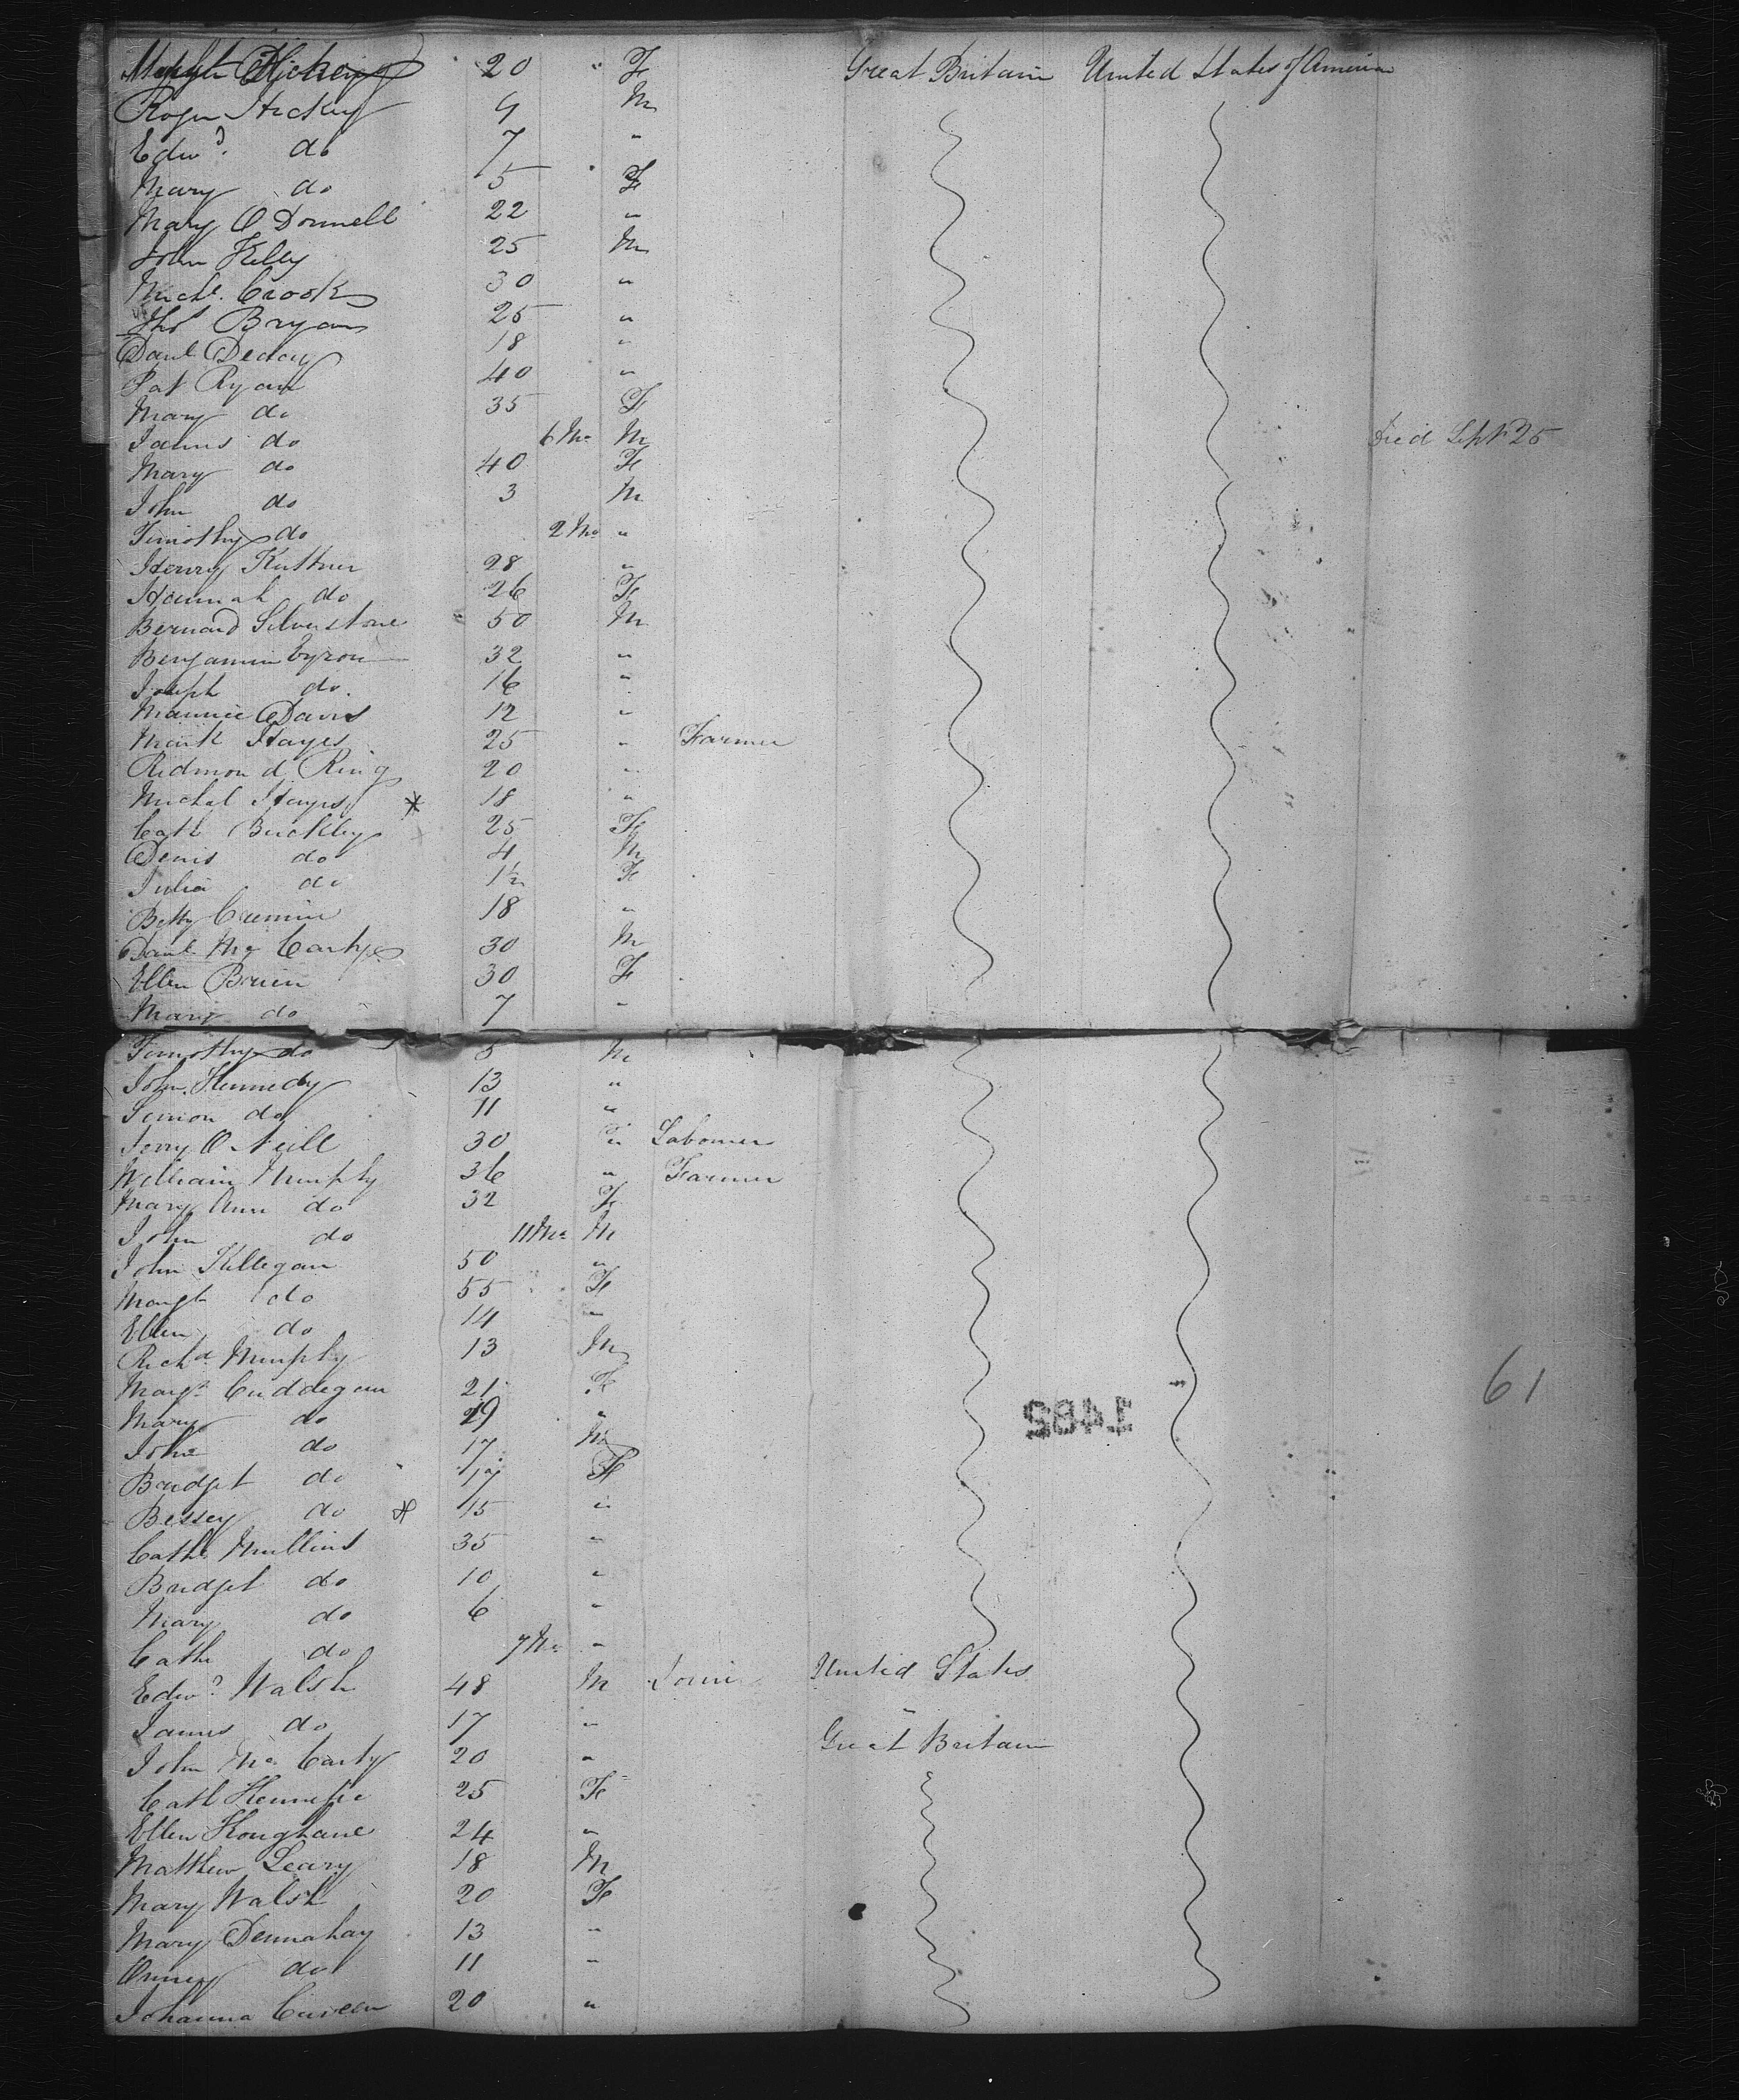 Hickey 20 " F Great Britain United States of America
Roger Hickey 9 M
Edwd. do 7 "
Mary do 5 F
Mary O Donnell 22 "
John Kelly 25 M
Michl. Crook 30 "
Thos Bryan 25 "
Danl. 18 "
Pat Ryan 40 "
Mary do 35 F
James do 6 Mo M Died Sept 25
Mary do 40 F
John do 3 M
Timothy do 2 Mo "
Henry Kuttner 28 "
Hannah do 26 F
Bernard Silverstone 50 M
Benjamin Byron 32 "
Joseph do. 16 "
Maurice Davis 12 "
Mark Hayes 25 " Farmer
Redmond Ring 20 "
Michal Hayes * 18 "
Cath Buckley 25 F
Denis do 4 M
Julia do 1½ F
Betty Cremin 18 "
Danl. Mc Carty 30 M
Ellen Brien 30 F
Mary do 7 "
Timothy do 5 M
John Kennedy 13 "
Simon do 11 "
Jerry O Neill 30 " Labourer
William Murphy 36 " Farmer
Mary Ann do 32 F
John do 11 Mo M
John Killegan 50 "
Margt do 55 F
Ellen do 14 "
Richd. Murphy 13 M
Margt. Cuddegan 21 F
Mary do 19 "
John do 17 M
Bridget do 17 F
Bessey do * 15 "
Cath Mullins 35 "
Bridget do 10 "
Mary do 6 "
Cath do 7 Mo "
Edwd. Walsh 48 M United States
James do 17 " "
John Mc Carty 20 " Great Britain
Cath 25 F
Ellen Houghane 24 "
Matthew Leary 18 M
Mary Walsh 20 F
Mary Dennahay 13 "
do 11 "
Johanna 20 "
1482
61